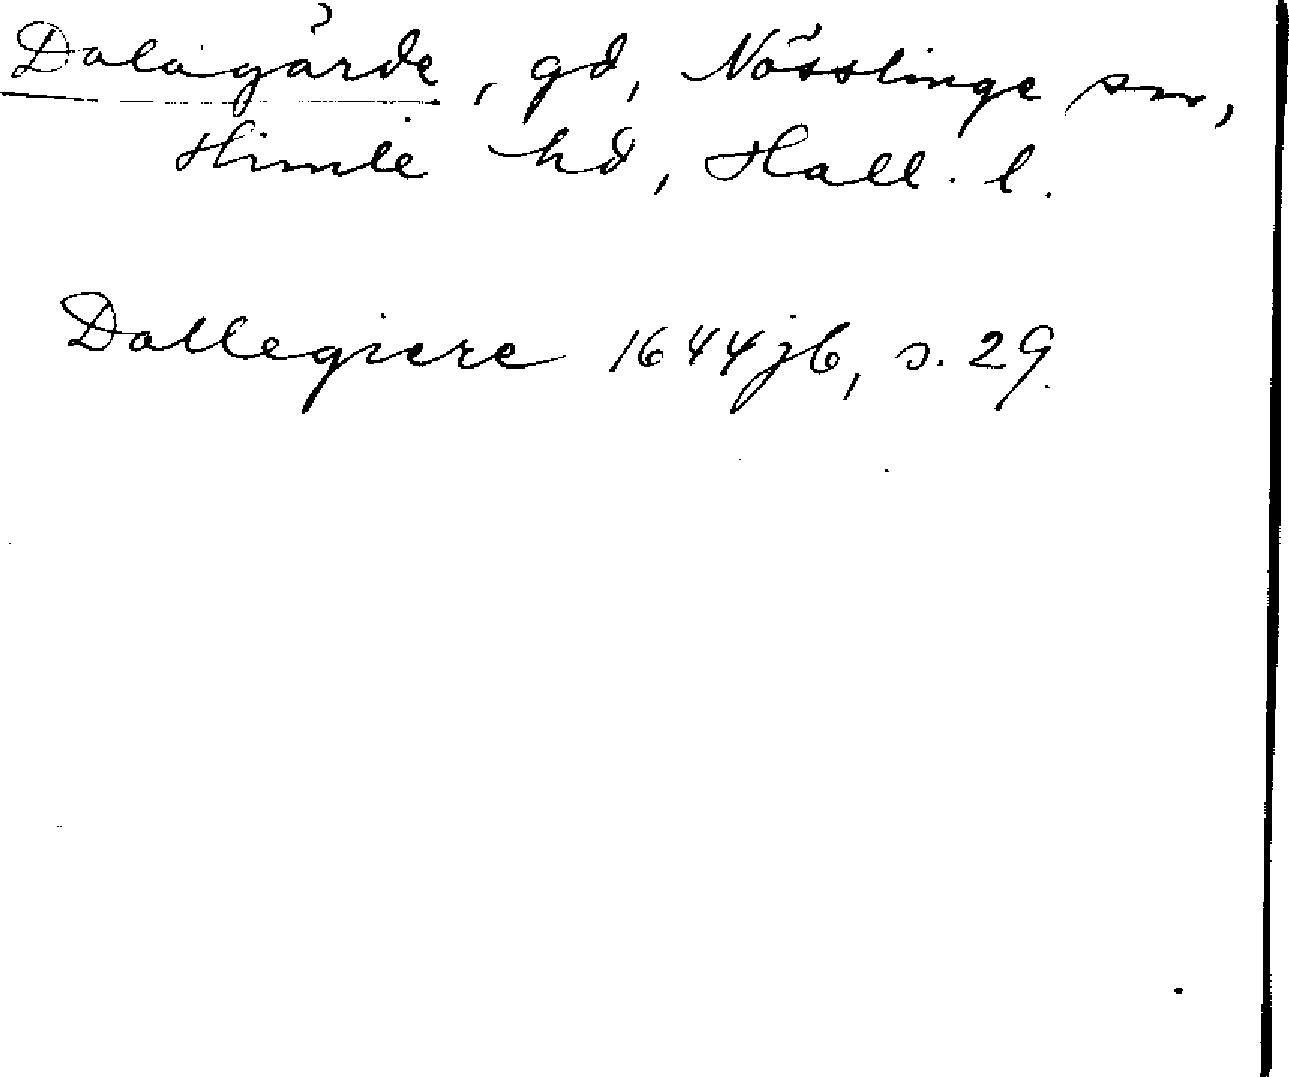 Dalagärde, gd, Nösslinge sn,
Himle hd, Hall. l.
Dallegiere 1644 jb, s. 29.